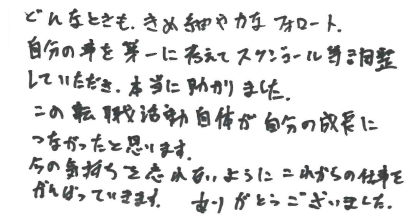 どんなときも、きめ細やかなフォロート、
自分の事を第一に考えてスケジュール等ご調整
していただき、本当に助かりました。
この転職活動自体が自分の成長に
つながったと思います。
今の気持ちを忘れないようにこれからの仕事を
がんばっていきます。ありがとうございました。